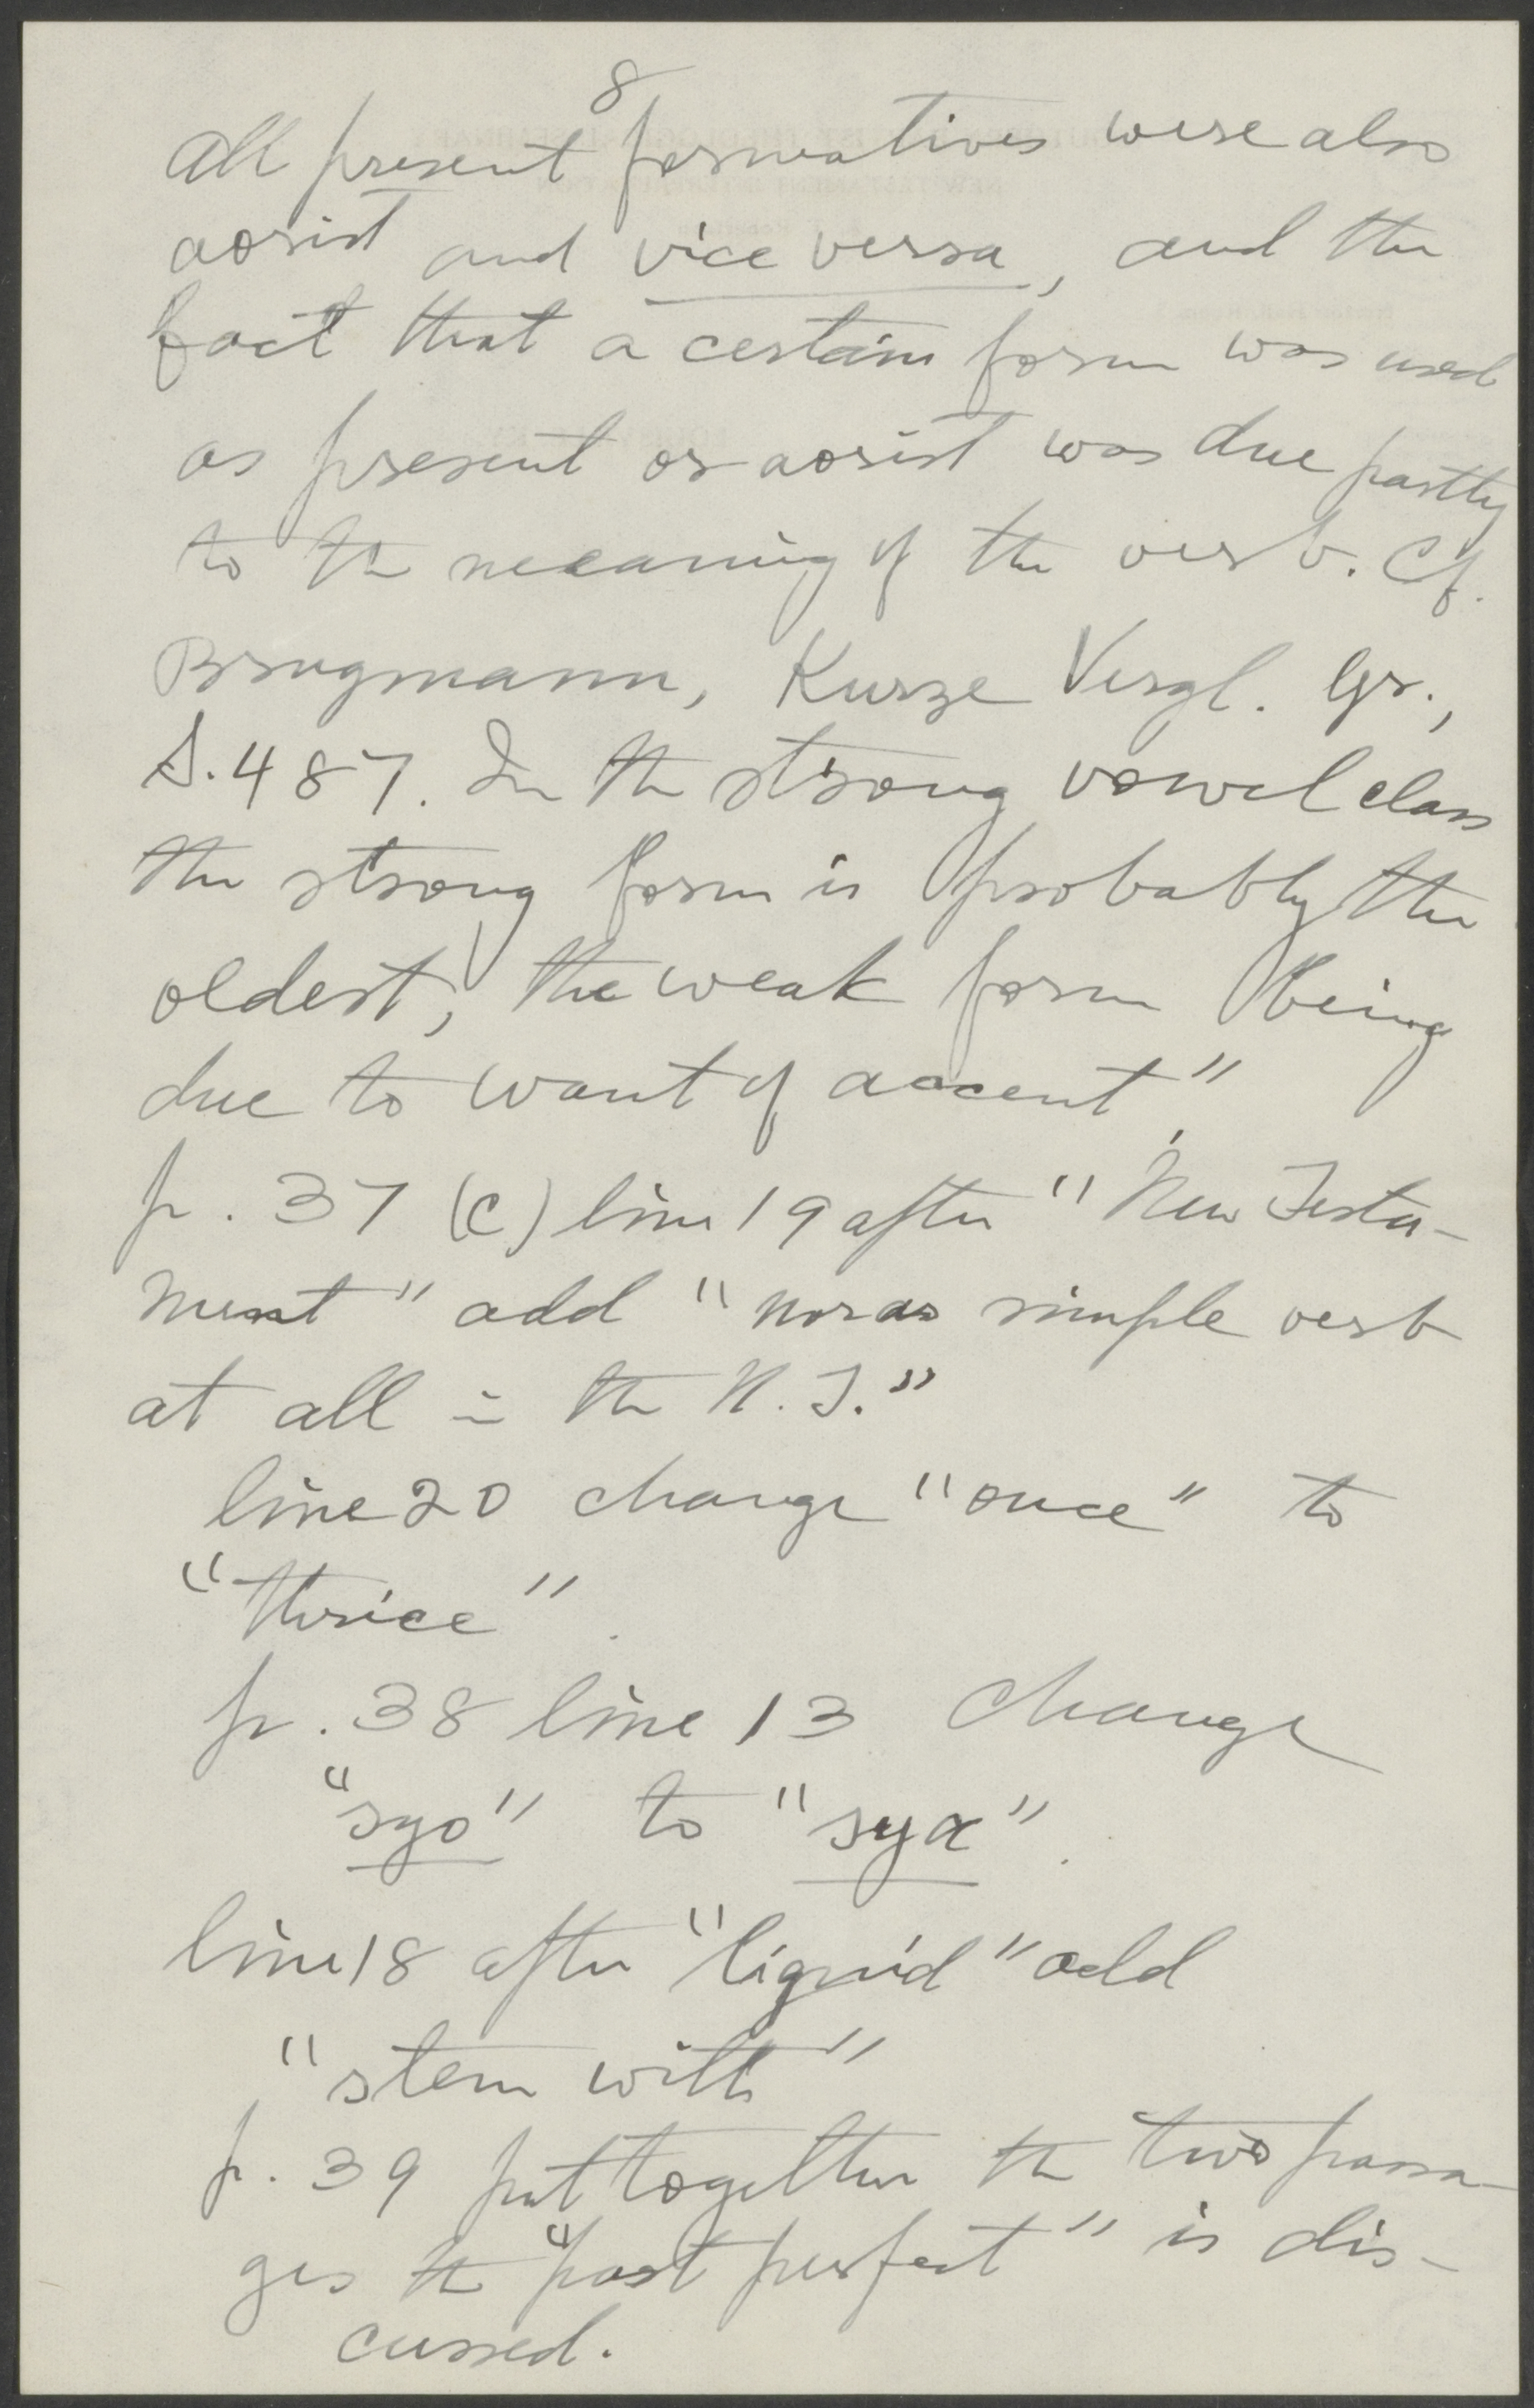 8
All present formatives were also
aorist and vice versa, and the
fact that a certain form was used
as present or aorist was due partly
to the meaning of the verb. Cf.
Brugmann, Kurze Vergl. Gr.,
S. 487. In the strong vowel class
the strong form is probably the
oldest, the weak form being
due to want of accent".
p. 37 (c) line 19 after "New Testa-
ment" add "nor as simple verb
at all in the N. T."
line 20 change "once" to
"thrice".
p. 38 line 13 change
"syo" to "syα".
line 18 after "liquid" add
"stem with"
p. 39 put together the two passa-
ges the "past perfect" is dis-
cussed.